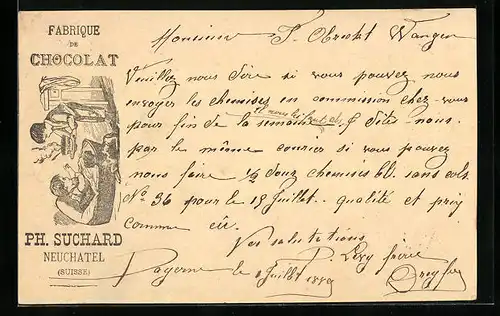 FABRIQUE
DE
CHOCOLAT
PH. SUCHARD
NEUCHATEL
(SUISSE)
Monsieur J. Obrecht Wangen
Veuillez nous dire si vous pouvez nous
envoyer les chemises en commission chez-vous
pour fin de la semaine. & dites-nous
par le même courier si vous pouvez
nous faire ½ douz chemises bl. sans cols
No 36 pour le 15 Juillet. qualité et prix
comme
Vos salutations
Payerne le Juillet 1889
Levy frère
Dreyfus